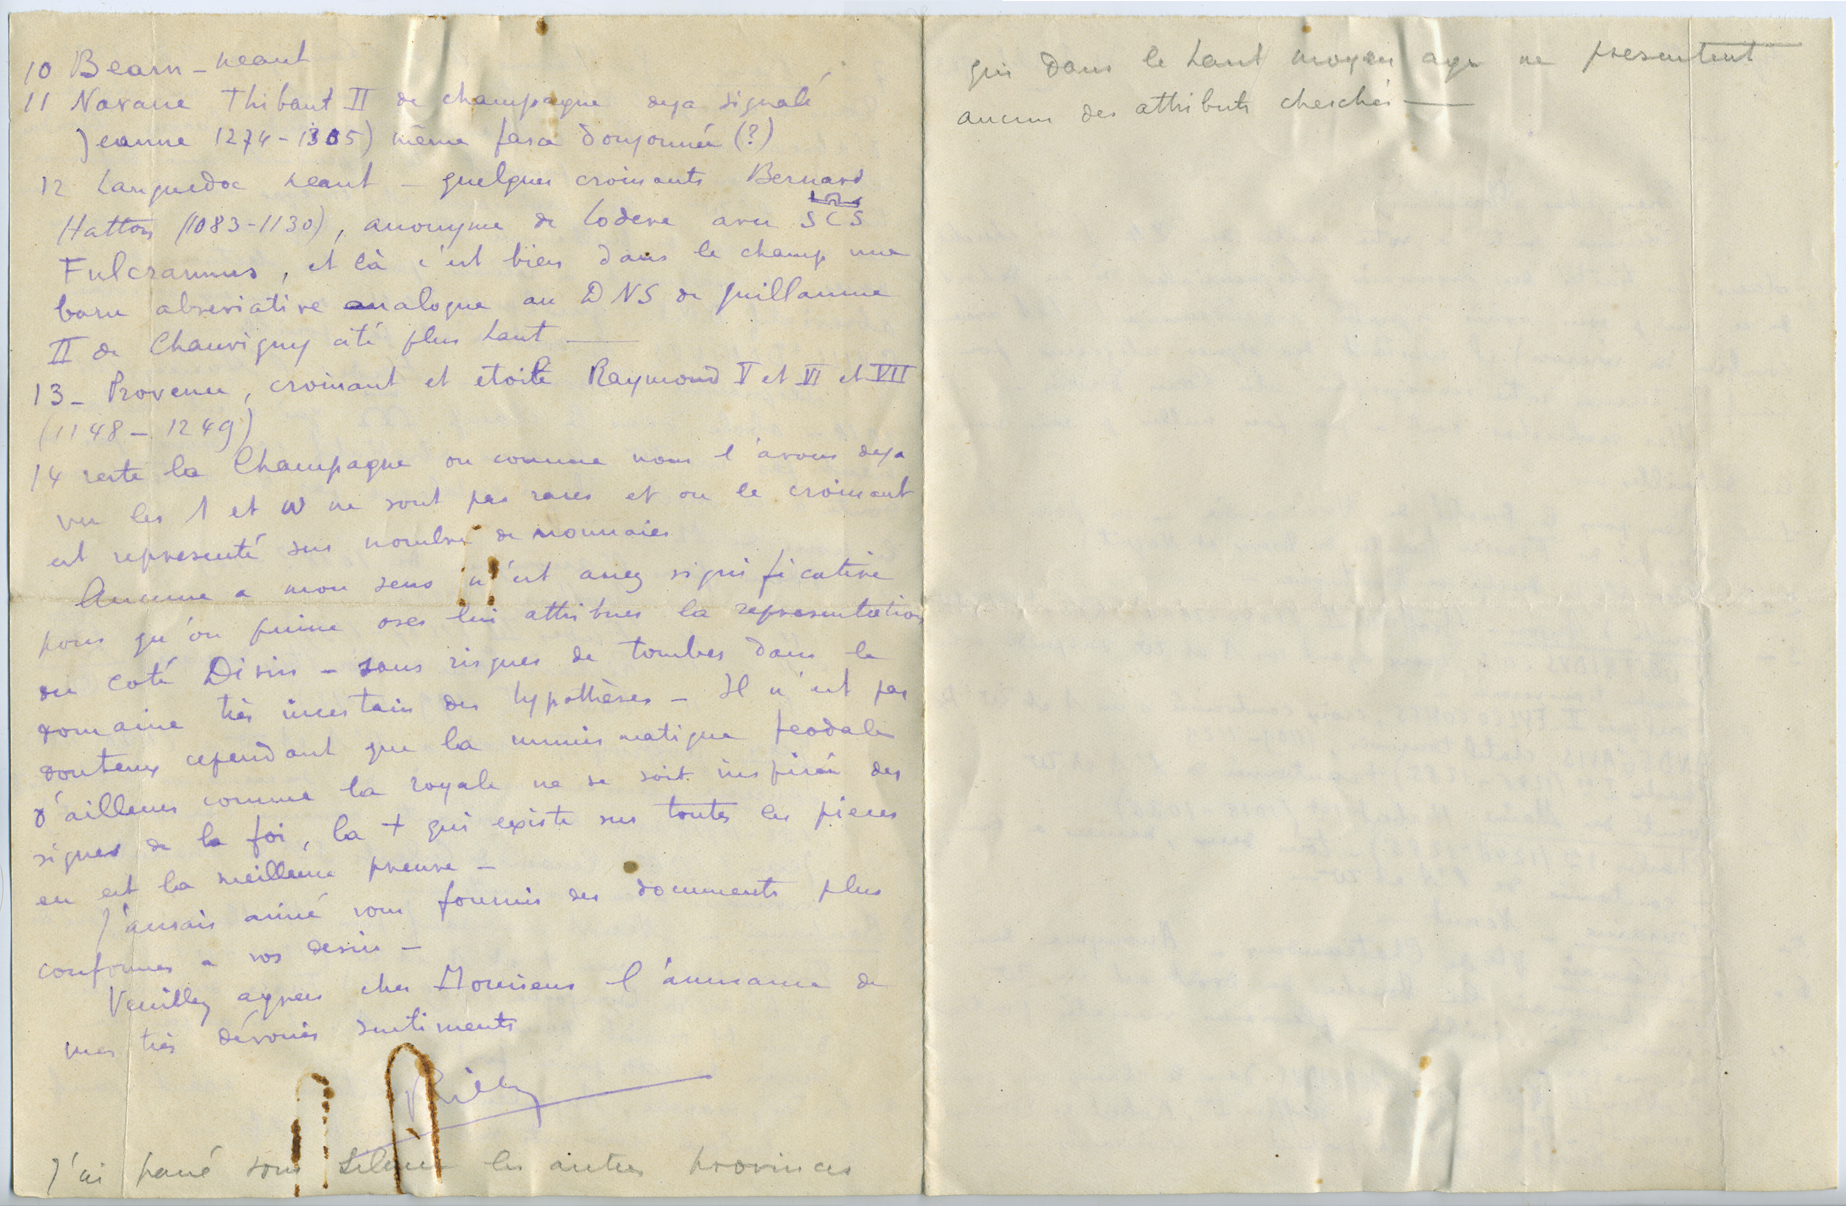 10 Bearn - neant
11 Navarre Thibaut II de champagne deja signalé
Jeanne 1274-1305) même fasce donjonnée (?)
12 Languedoc neant - quelques croissants Bernard
Hatton (1083-1130), anonyme de Lodeve avec SCS
Fulcrannus, et là c'est bien dans le champ une
barre abreviative analogue au DNS de Guillaume
II de Chauvigny cité plus haut —
13 - Provence, croissant et etoile Raymond V et VI et VII
(1148 - 1249)
14 reste la Champagne ou comme nous l'avons deja
vu les et ω ne sont pas rares et ou le croissant
est representé sur nombre de monnaies
Aucune a mon sens n'est assez significative
pour qu'on puisse oser lui attribuer la representation
du coté Divin - sans risques de tomber dans le
domaine très incertain des hypothèses - Il n'est pas
douteux cependant que la numismatique feodale
d'ailleurs comme la royale ne se soit inspirée des
signes de la foi, la + qui existe sur toutes les pieces
en est la meilleure preuve -
J'aurais aimé vous fournir des documents plus
conformes a vos desirs -
Veuillez agreer cher Monsieur l'assurance de
mes très dévoués sentiments
J'ai passé sous silence les autres provinces
qui dans le haut moyen age ne presentent
aucun des attributs cherchés —